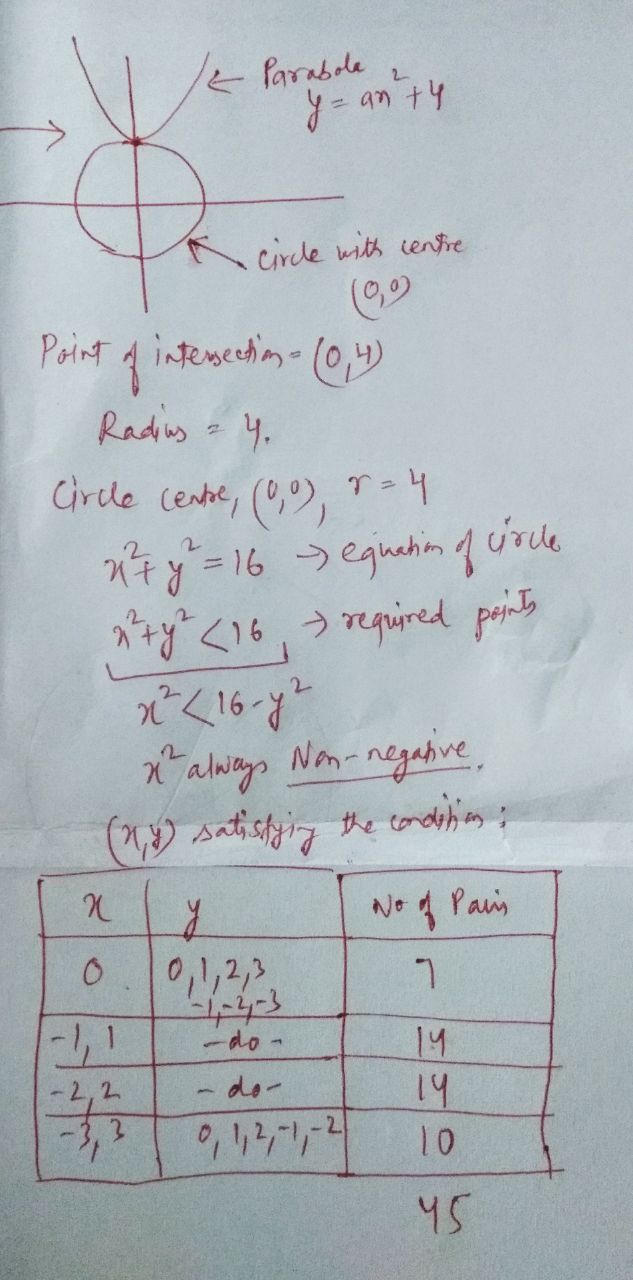 ← Parabola
y = ax² + 4
Circle with centre
(0,0)
Point of intersection = (0,4)
Radius = 4.
Circle centre, (0,0), r = 4
x² + y² = 16 → equation of circle
x² + y² < 16, → required points
x² < 16 - y²
x² always Non-negative.
(x,y) satisfying the condition :
x y No of Pairs
0 0,1,2,3 7
-1,-2,-3
-1, 1 - do - 14
-2, 2 - do - 14
-3, 3 0, 1, 2, -1, -2 10
45